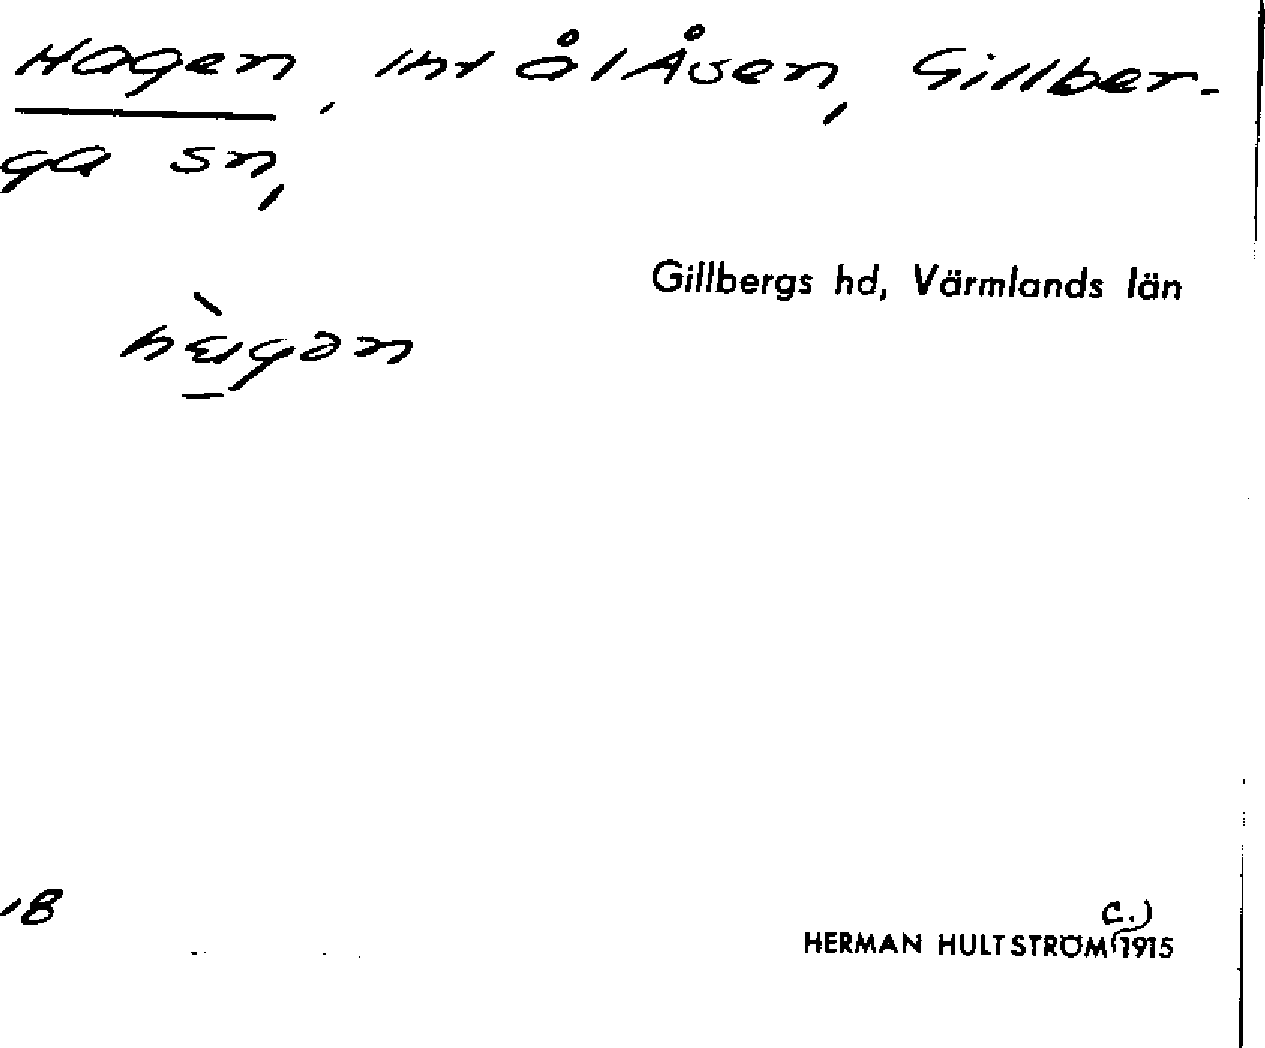 Hagen, lht å l Åsen, Gillber-
ga sn,
Gillbergs hd, Värmlands län
18
HERMAN HULTSTRÖM (c.) 1915